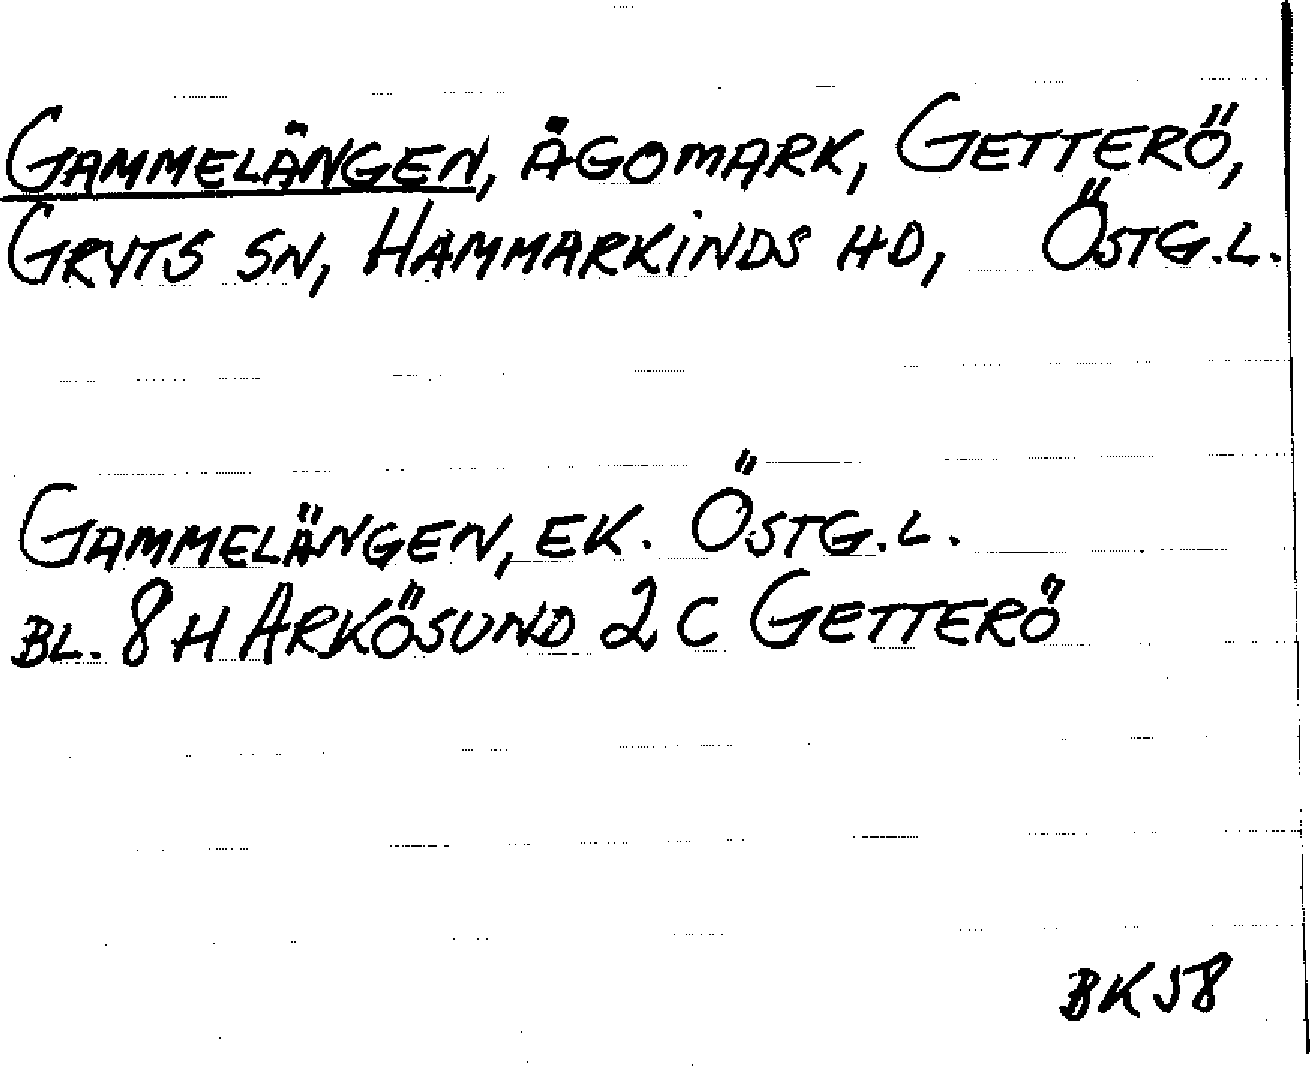 GAMMELÄNGEN, ÄGOMARK, GETTERÖ,
GRYTS SN, HAMMARKINDS HD, ÖSTG.L.
GAMMELÄNGEN, EK. ÖSTG.L.
BL. 8 H ARKÖSUND 2 C GETTERÖ
BK 58